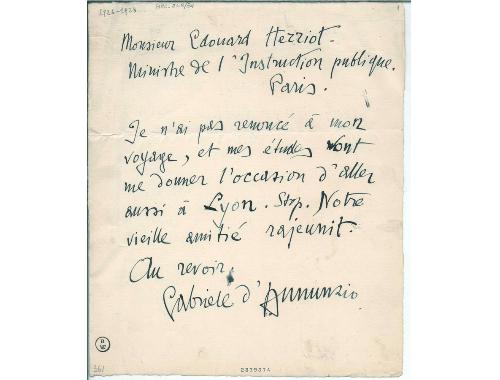 1926-1928
Monsieur Edouard Herriot.
Ministre de l'Instruction publique.
Paris.
Je n'ai pas renoncé à mon
voyage, et mes études vont
me donner l'occasion d'aller
aussi à Lyon. Stop. Notre
vieille amitié rajeunit.
Au revoir,
Gabriele d'Annunzio
361
2339374